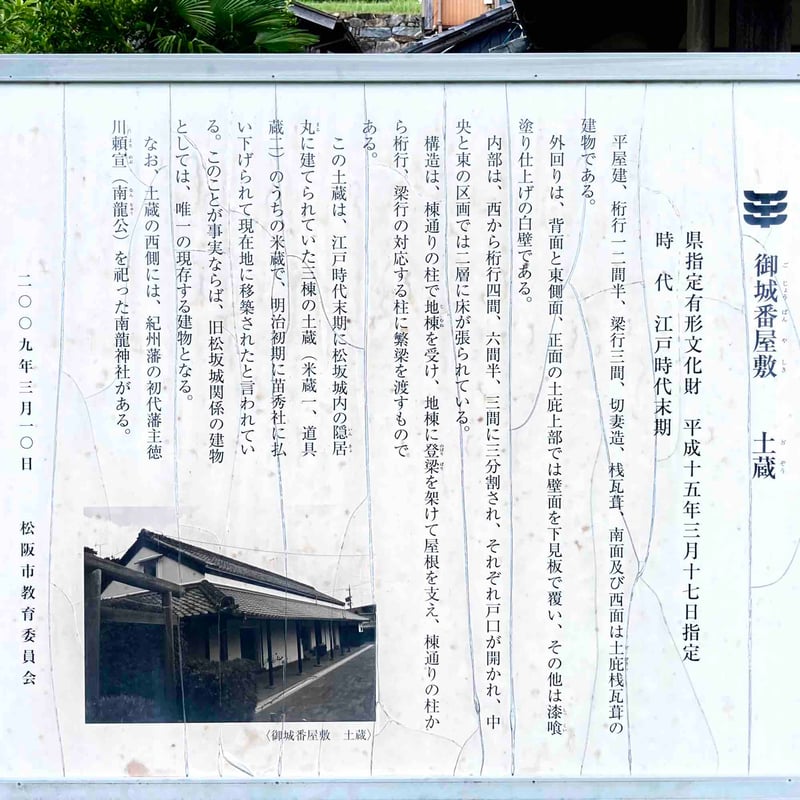 御城番屋敷　土蔵
県指定有形文化財　平成十五年三月十七日指定
時　代　江戸時代末期
平屋建、桁行一二間半、梁行三間、切妻造、桟瓦葺、南面及び西面は土庇桟瓦葺の
建物である。
外回りは、背面と東側面、正面の土庇上部では壁面を下見板で覆い、その他は漆喰
塗り仕上げの白壁である。
内部は、西から桁行四間、六間半、三間に三分割され、それぞれ戸口が開かれ、中
央と東の区画では二層に床が張られている。
構造は、棟通りの柱で地棟を受け、地棟に登梁を架けて屋根を支え、棟通りの柱か
ら桁行、梁行の対応する柱に繋梁を渡すもので
ある。
この土蔵は、江戸時代末期に松坂城内の隠居
丸に建てられていた三棟の土蔵（米蔵一、道具
蔵二）のうちの米蔵で、明治初期に苗秀社に払
い下げられて現在地に移築されたと言われてい
る。このことが事実ならば、旧松坂城関係の建物
としては、唯一の現存する建物となる。
なお、土蔵の西側には、紀州藩の初代藩主徳
川頼宣（南龍公）を祀った南龍神社がある。
二〇〇九年三月一〇日　松阪市教育委員会
〈御城番屋敷　土蔵〉